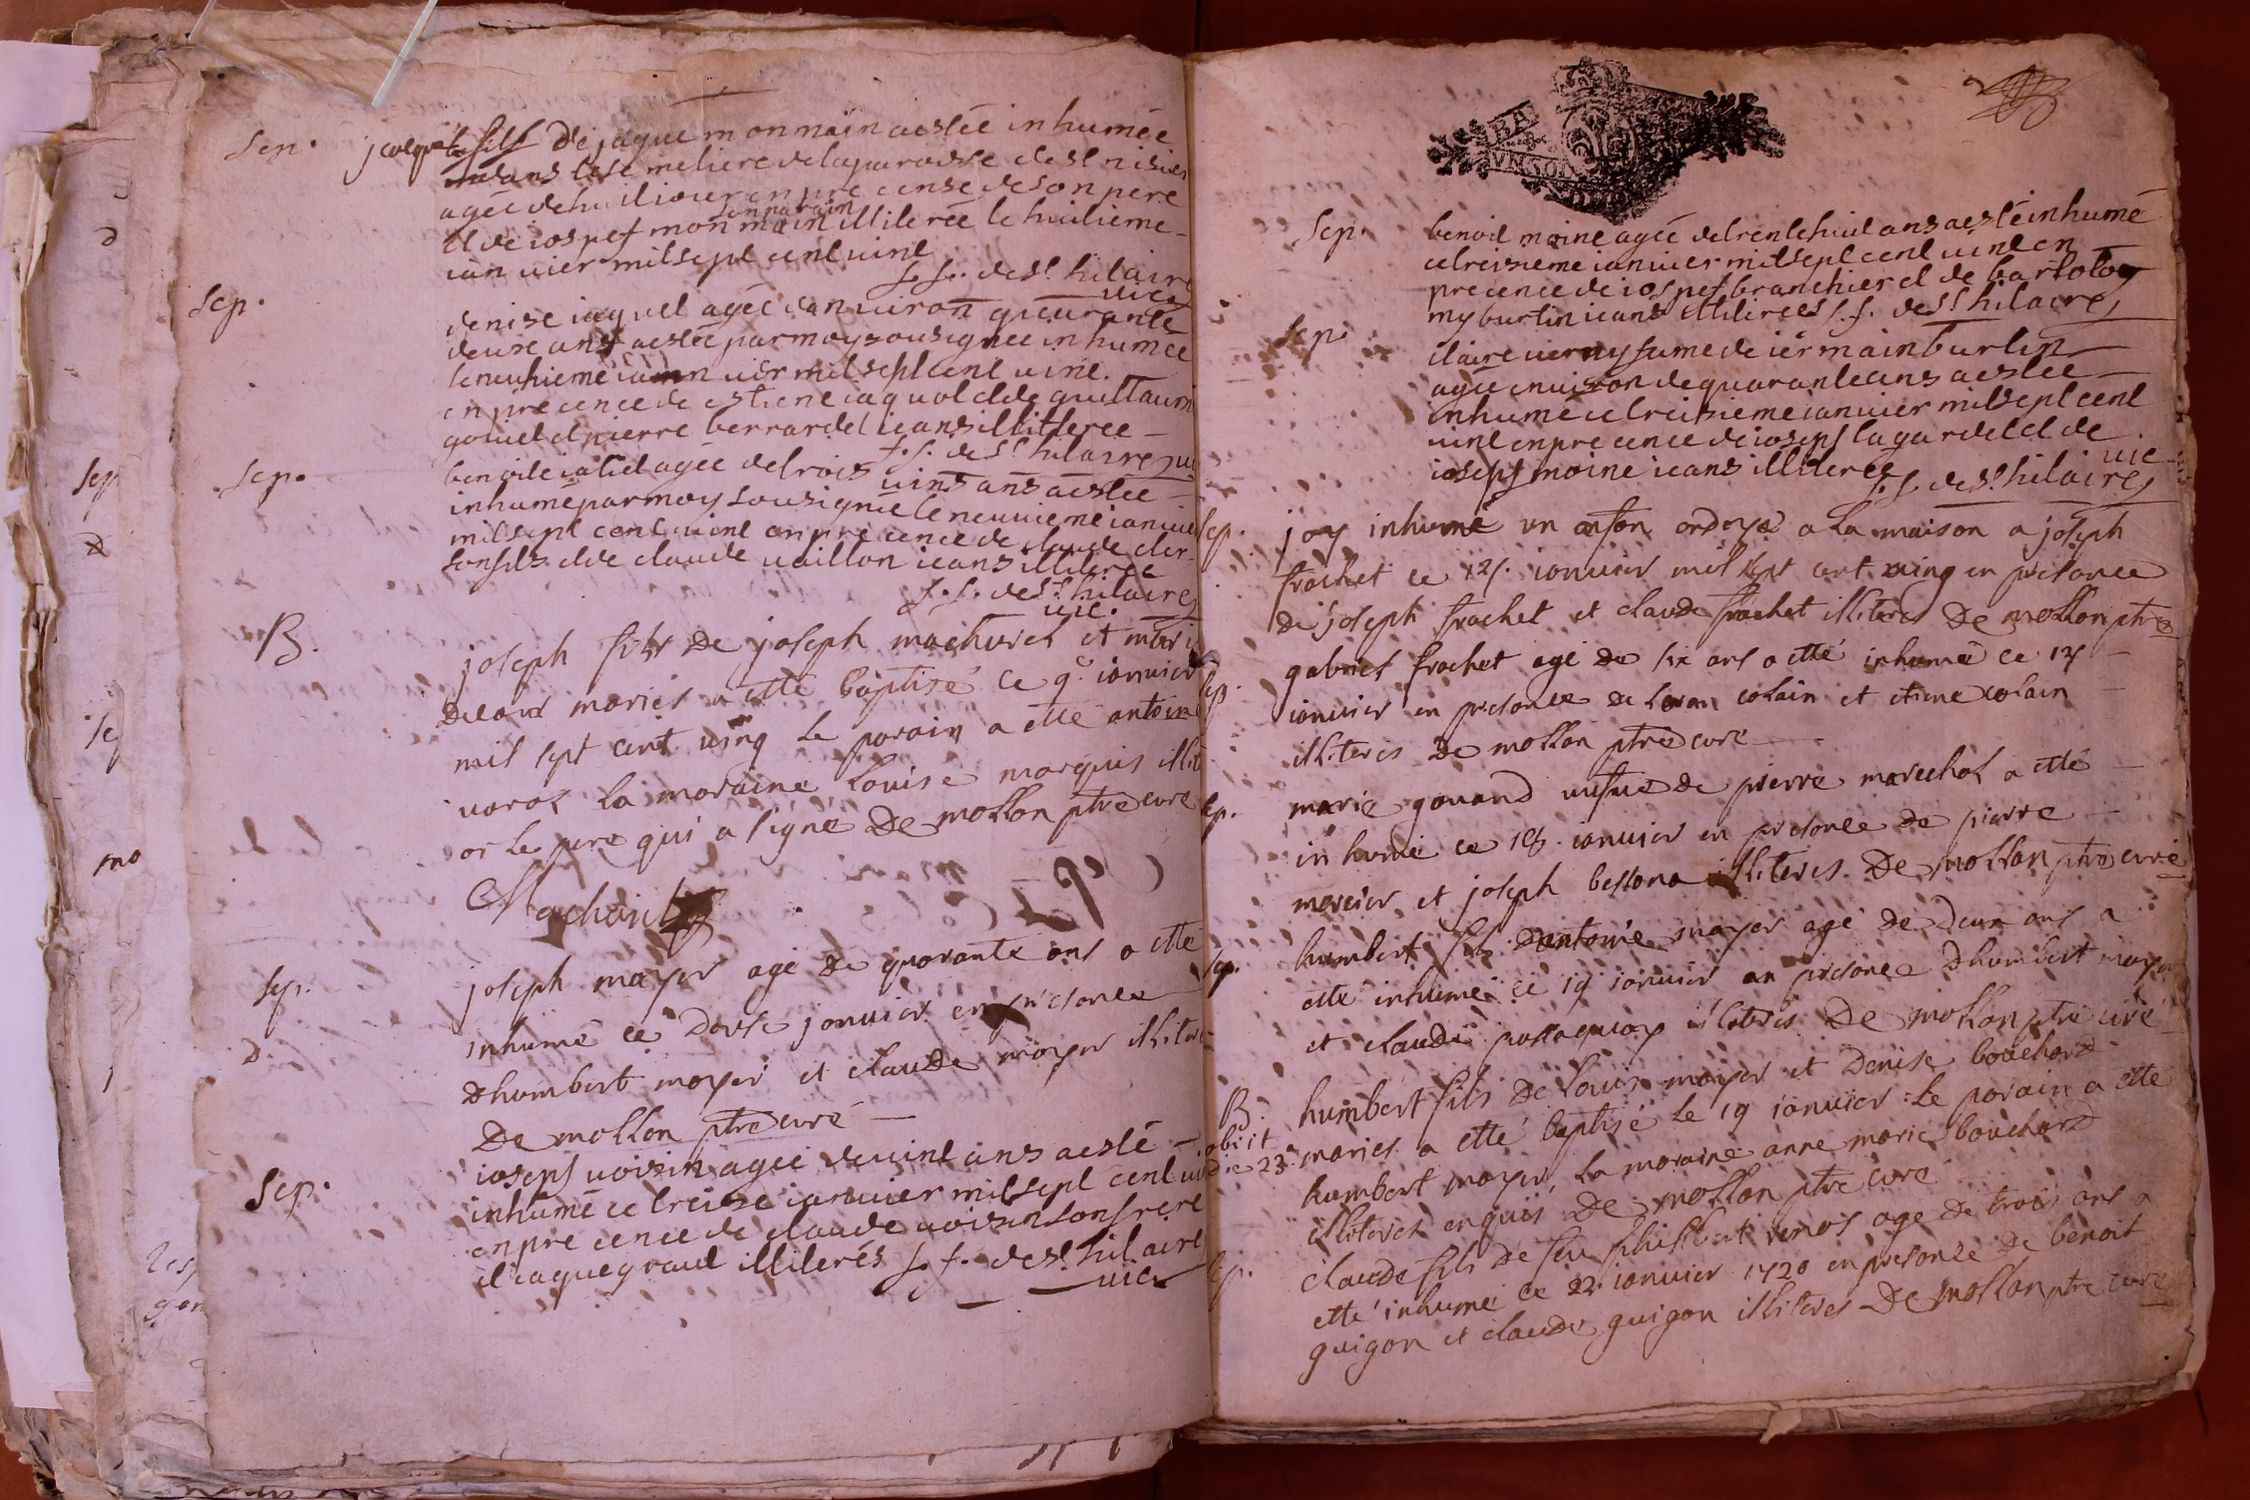 Sep. jacque fils de jaque monmain a estée inhumée
dans le semetiere de la paroisse de st nisier
agée de huit iour en precense de son pere
et de iospef monmain son parain illiterée le huitieme
ianvier mil sept cent vint
f. f. de St hilaire
vic
Sep. denise iaquet agée danviron quarante
deuxe ans a estée par moy sousignee inhumee
le neuvieme ianvier mil sept cent vint
en precence de estiene iaquot et de guillaume
gouiet et pierre berrardet ieans illitteree
f. f. de St hilaire vic
Sep. benoite iatiet agée de trois vins ans a estee
inhume par moy sousignée le neuvieme ianvier
mil sept cent vint en precence de claude
son fils et de claude vaillon ieans illiteree
f. f. de St hilaire
vic.
B. joseph fils de joseph machuret et marie
mariés a etté baptisé ce 9e ianvier
mil sept cent ving le parain a etté antoine
varot la maraine louise marquis illit
or le pere qui a signé De mollon ptre curé
Machurel
Sep. joseph mayer agé de quarante ans a etté
inhumé ce douse janvier en presence
dhumbert mayer et claude mayer illiteré
D
De mollon ptre curé
Sep. ioseps voisin agée de vint ans a esté
inhumé ce treise ianvier mil sept cent vint
en precence de claude voisin son frere
et iaque graut illiterés f. f. de St hilaire
vic
BA
VNSOL
Sep. benoit moine agée de trente huit ans a esté inhumé
ce treisieme ianvier mil sept cent vint en
precence de iospef branchier et de bartolo
my burtin ieans illiterees f. f. de St hilaire
Sep. claire verny fame de iermain burtin
agée environ de quarante ans a estee
inhumé ce treisieme ianvier mil sept cent
vint en precence de ioseps lagardet et de
ioseps moine ieans illiteree
vic
f. f. de St hilaire
Sep. jay inhumé un anfan ondoyé a la maison a joseph
frachet ce 15. ianvier mil sept cent ving en presance
de joseph frachet et claude frachet illiterés De mollon ptre
Sep. gabriel frachet agé de six ans a etté inhumé ce 15
ianvier en presance de colain et etiene colain
illiterés De mollon ptre curé
Sep. marie gonand vefve de pierre marechal a etté
inhumé ce 18. ianvier en presance de pierre
mercier et joseph bessona illiterés De mollon ptre curé
Sep. humbert fils dantoine mayer agé de deux ans a
etté inhumé ce 19 ianvier en presance dhumbert mayer
et claude passaquay illiterés De mollon ptre curé
B. humbert fils de louis mayer et denise bouchard
obiit mariés a etté baptisé le 19 ianvier le parain a etté
die 23 humbert mayer, la maraine anne marie bouchard
illiterés enquis De mollon ptre curé
Sep. claude fils de feu philibert venos agé de trois ans a
etté inhumé ce 22. ianvier 1720 en presance de benoit
guigon et claude guigon illiterés De mollon ptre curé